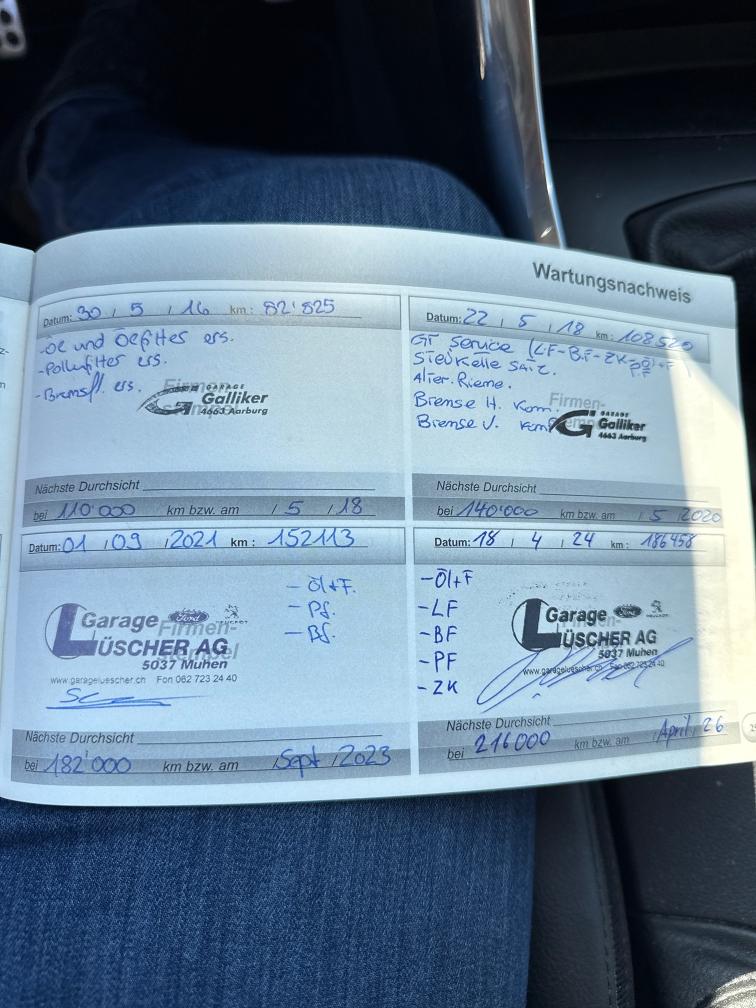 Wartungsnachweis
Datum: 30 / 5 / 16 km: 82'825
-Öl und Ölfilter ers.
-Pollenfilter ers.
-Bremsfl. ers.
GARAGE
Galliker
4663 Aarburg
Nächste Durchsicht
bei 110'000 km bzw. am / 5 / 18
Datum: 22 / 5 / 18 km: 108520
GT Service (LF-BF-ZK-Öl+F
P.F
Steukelle SATZ.
Alter. Rieme.
Brense H. Kom.
Brense V. Kom
Firmen-
GARAGE
Galliker
4663 Aarburg
Nächste Durchsicht
bei 140'000 km bzw. am / 5 / 2020
Datum: 01 / 09 / 2021 km: 152113
- Öl+F.
- Pf.
- Bf.
Garage Ford PEUGEOT
Firmen-
LÜSCHER AG
5037 Muhen
www.garageluescher.ch Fon 062 723 24 40
Nächste Durchsicht
bei 182'000 km bzw. am / Sept / 2023
Datum: 18 / 4 / 24 km: 186458
-Öl+F
-LF
-BF
-PF
-ZK
Garage Ford PEUGEOT
Firmen-
LÜSCHER AG
5037 Muhen
www.garageluescher.ch Fon 062 723 24 40
Nächste Durchsicht
bei 216000 km bzw. am / April / 26